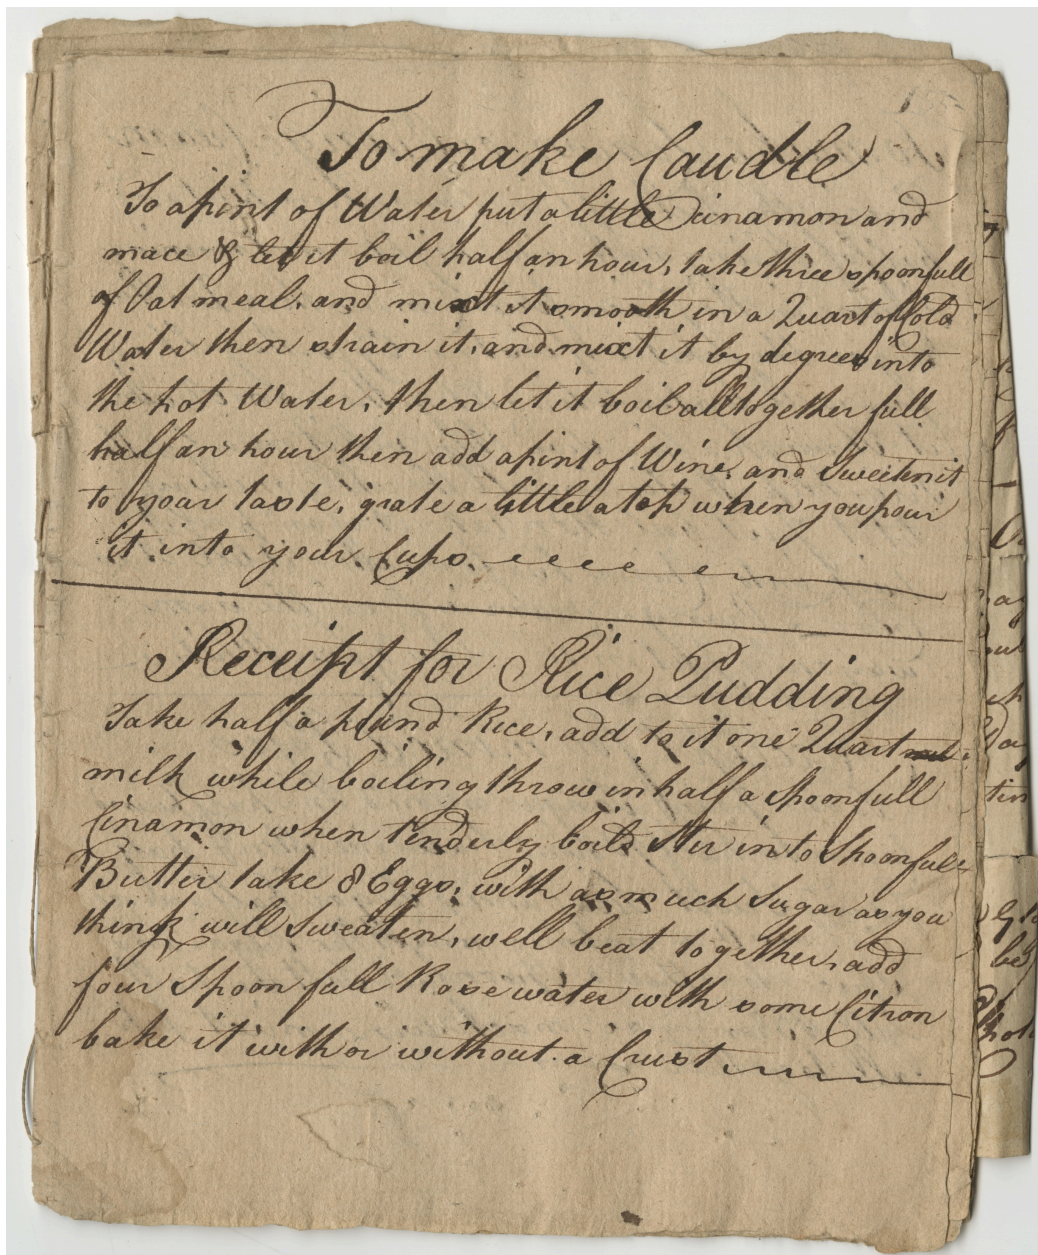 To make Caudle
To a pint of Water put a little Cinamon and
mace & let it boil half an hour, take three spoonfull
of Oatmeal, and mixt it smooth in a Quart of Cold
Water then strain it, and mixt it by degrees into
the hot Water, then let it boil alltogether full
half an hour then add a pint of Wine, and Sweeten it
to your taste, grate a little atop when you pour
it into your Cups.
Receipt for Rice Pudding
Take half a pound Rice, add to it one Quart
milk while boiling throw in half a spoonfull
Cinamon when tenderly boild stir in to Spoonfull
Butter take 8 Eggs, with as much Sugar as you
think will sweaten, well beat together, add
four Spoon full Rose water with some Citron
bake it with or without a Crust